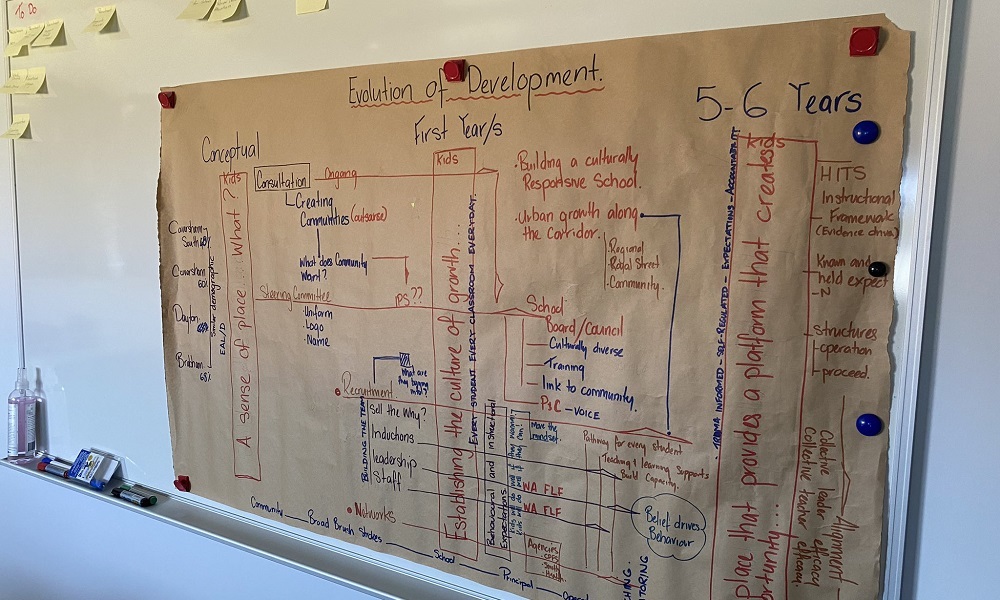 To Do
Evolution of Development.
5-6 Years
First Year/s
Conceptual
Kids
A sense of place... What?
Consultation
Ongoing
Creating
Communities (outsource)
What does Community
Want?
Steering Committee
IPS??
Uniform
Logo
Name
South
Similar demographic
EAL/D
Kids
Establishing the culture of growth....
EVERY STUDENT EVERY CLASSROOM EVERY DAY.
• Building a culturally
Responsive School.
• Urban growth along
the Corridor.
• Regional
• Community.
School
Board/Council
— Culturally diverse
— Training
— link to community.
PSC — VOICE
What are
they buying
into?
• Recruitment
BUILDING THE TEAM
Sell the Why?
Inductions
leadership
Staff
• Networks
Behavioural and Instructional
Expectations
Move the
mindset.
WA FLF
WA FLF
Agencies
Pathway for every student
Teaching & learning supports
Build Capacity.
Belief drives
Behaviour
Community
Broad Brush Studies
School
Principal
TRAUMA INFORMED SELF-REGULATED - EXPECTATIONS - ACCOUNTABILITY
Kids
place that provides a platform that creates
HITS
Instructional
Framework
(Evidence driven)
Known and
held expect
-N
Structures
operation
proceed.
Alignment
Collective leader efficacy
Collective teacher efficacy